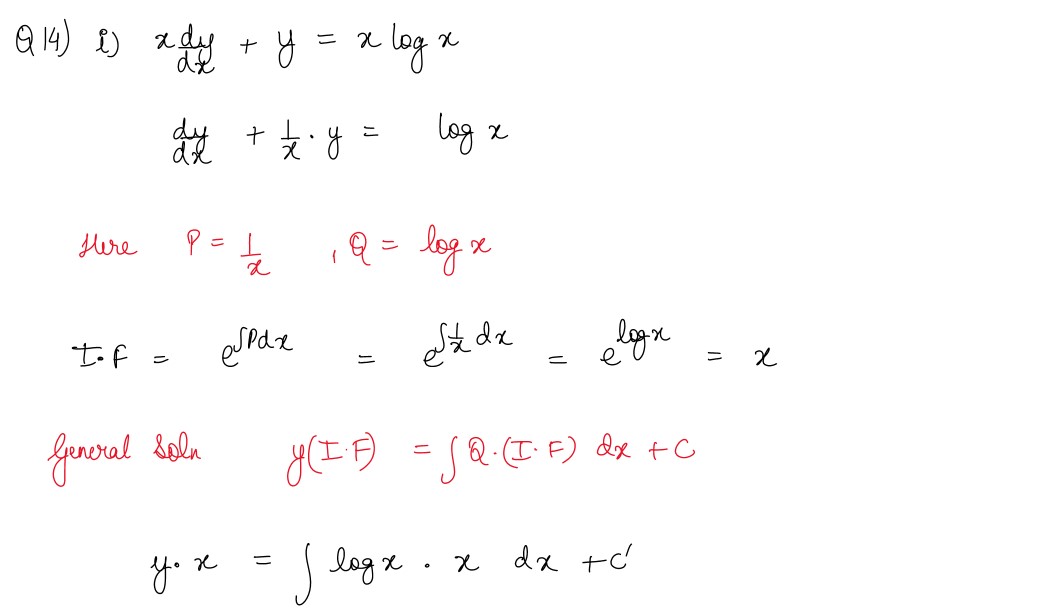 Q14) i) x dy/dx + y = x log x
dy/dx + 1/x · y = log x
Here P = 1/x , Q = log x
I.F = e^∫Pdx = e^∫1/x dx = e^log x = x
General Soln y(I.F) = ∫ Q.(I.F) dx + C
y. x = ∫ log x . x dx + C'